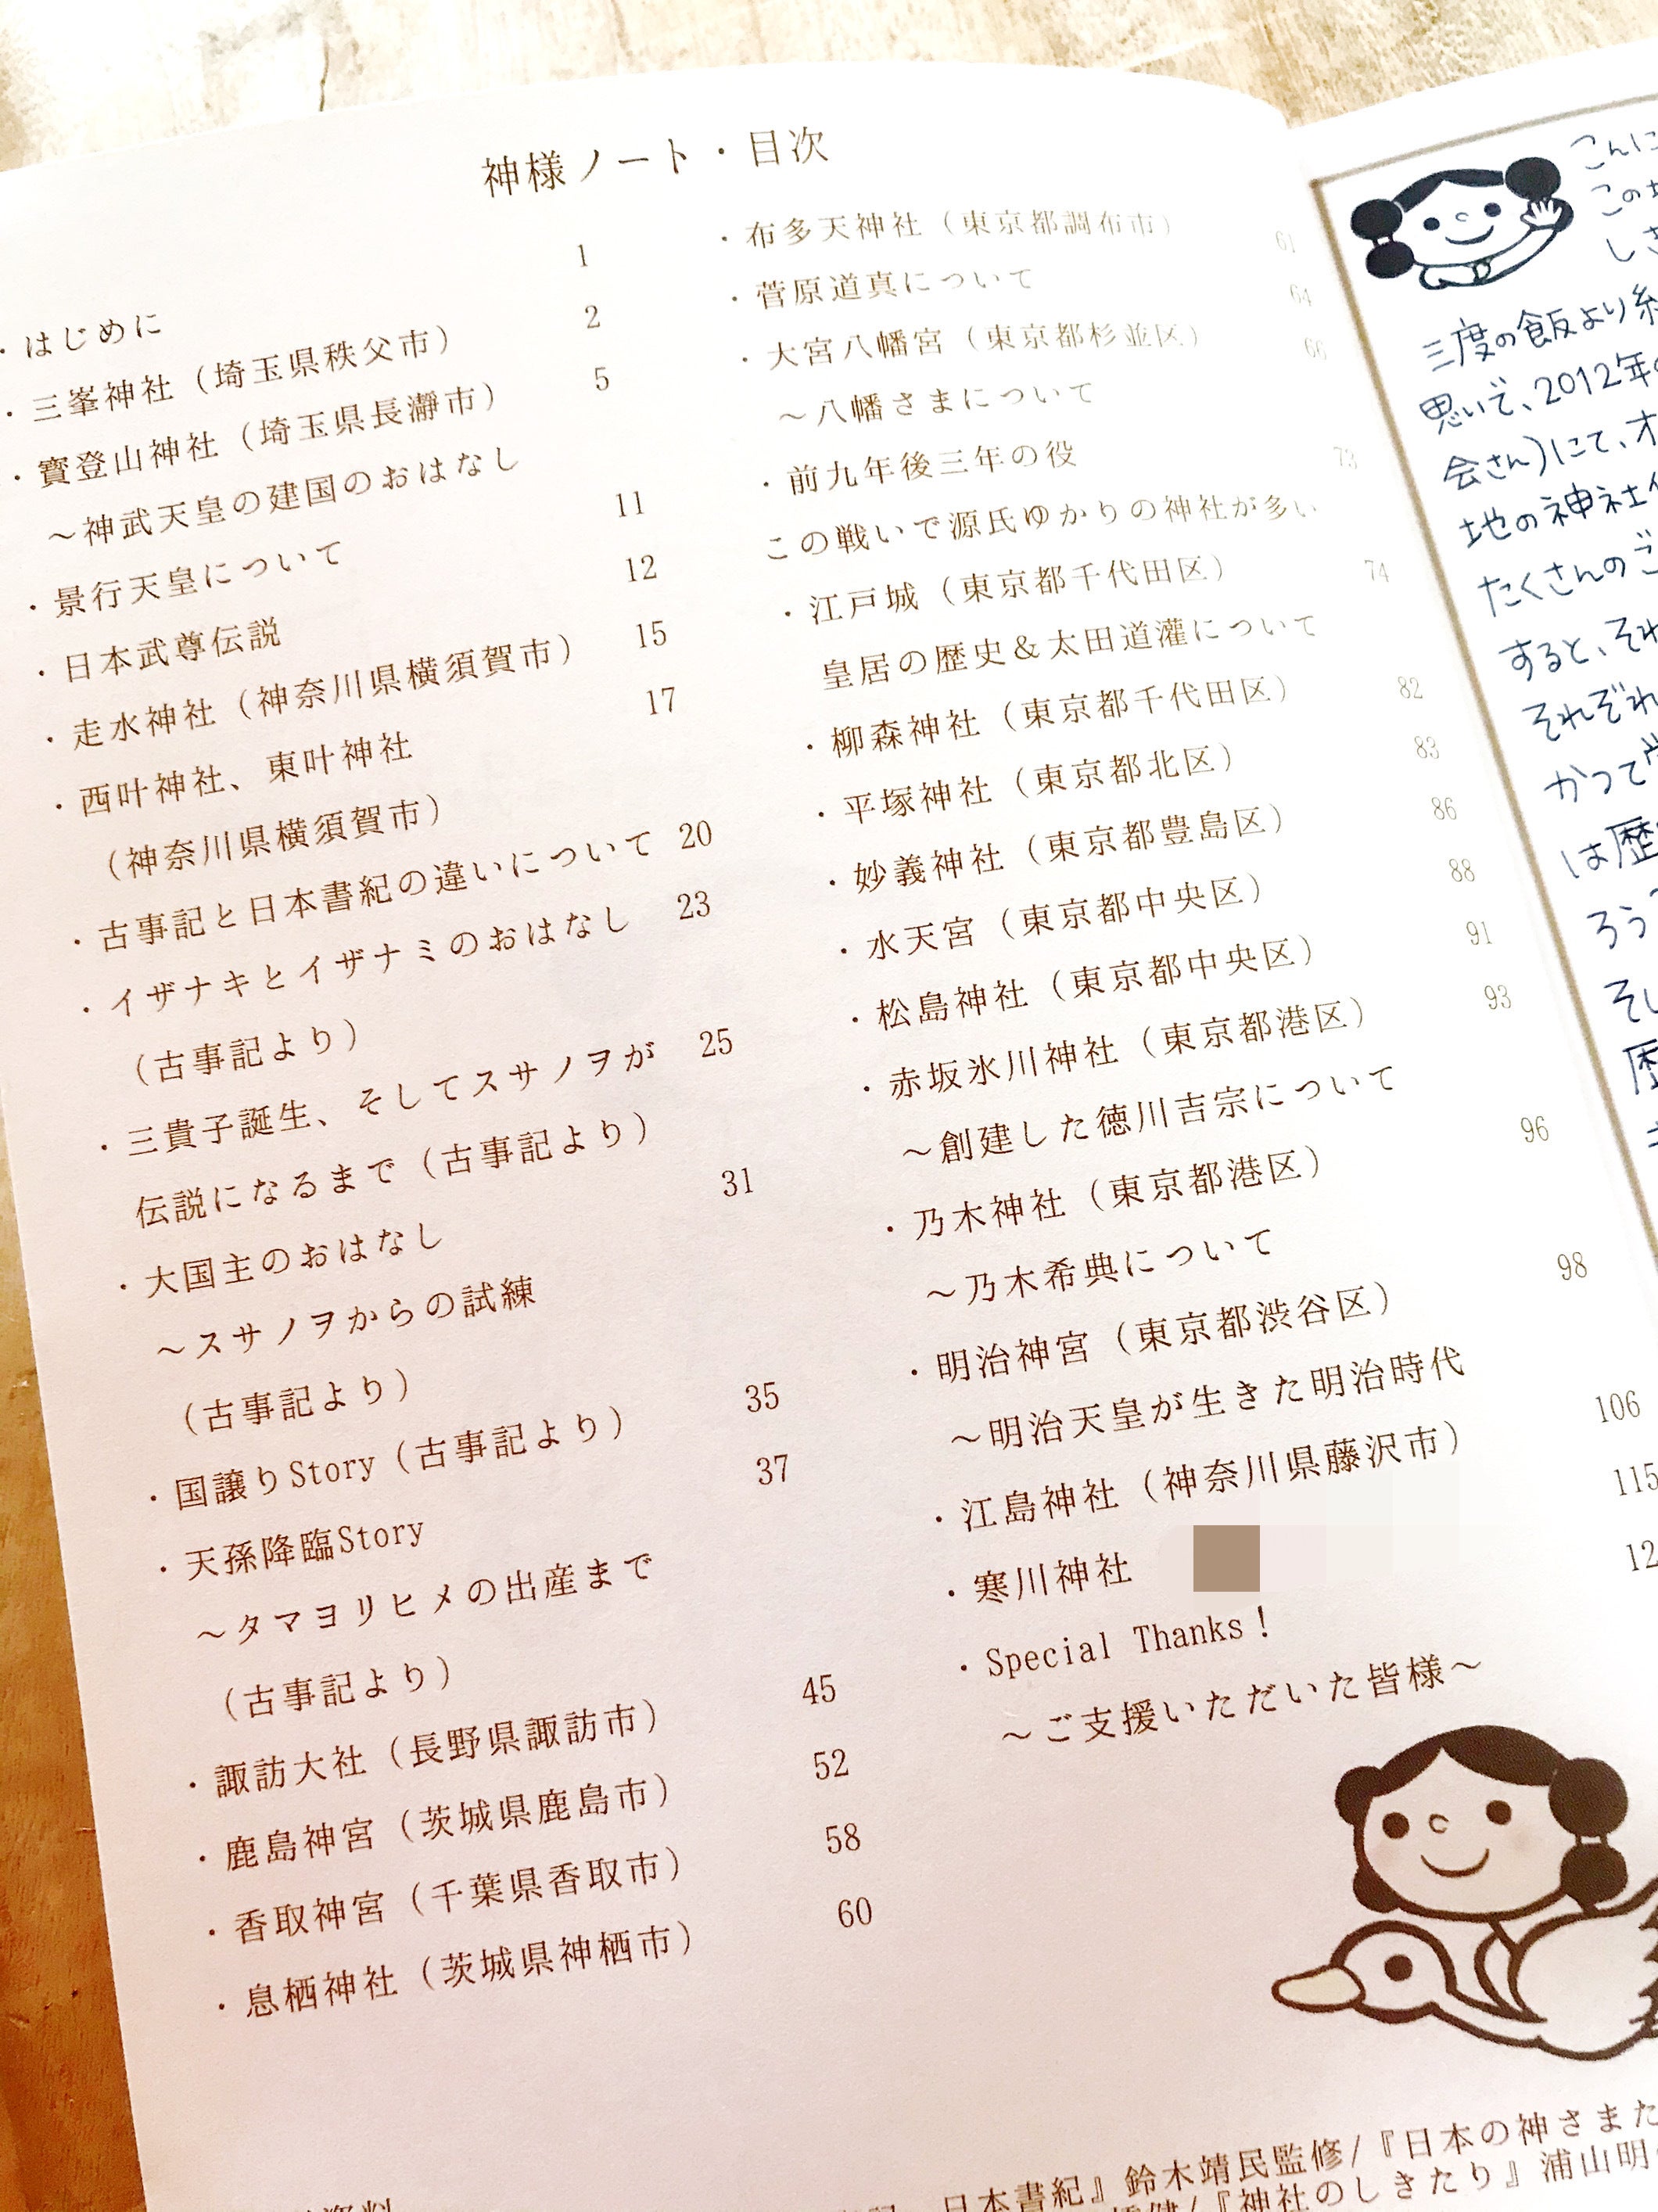 神様ノート・目次
・はじめに 1
・三峯神社（埼玉県秩父市） 2
・寳登山神社（埼玉県長瀞市） 5
～神武天皇の建国のおはなし
・景行天皇について 11
・日本武尊伝説 12
・走水神社（神奈川県横須賀市） 15
・西叶神社、東叶神社 17
（神奈川県横須賀市）
・古事記と日本書紀の違いについて 20
・イザナキとイザナミのおはなし 23
（古事記より）
・三貴子誕生、そしてスサノヲが 25
伝説になるまで（古事記より）
・大国主のおはなし 31
～スサノヲからの試練
（古事記より）
・国譲りStory（古事記より） 35
・天孫降臨Story 37
～タマヨリヒメの出産まで
（古事記より）
・諏訪大社（長野県諏訪市） 45
・鹿島神宮（茨城県鹿島市） 52
・香取神宮（千葉県香取市） 58
・息栖神社（茨城県神栖市） 60
・布多天神社（東京都調布市） 61
・菅原道真について 64
・大宮八幡宮（東京都杉並区） 66
～八幡さまについて
・前九年後三年の役 73
この戦いで源氏ゆかりの神社が多い
・江戸城（東京都千代田区） 74
皇居の歴史＆太田道灌について
・柳森神社（東京都千代田区） 82
・平塚神社（東京都北区） 83
・妙義神社（東京都豊島区） 86
・水天宮（東京都中央区） 88
・松島神社（東京都中央区） 91
・赤坂氷川神社（東京都港区） 93
～創建した徳川吉宗について
・乃木神社（東京都港区） 96
～乃木希典について
・明治神宮（東京都渋谷区） 98
～明治天皇が生きた明治時代
・江島神社（神奈川県藤沢市） 106
・寒川神社 115
・Special Thanks！ 12
～ご支援いただいた皆様～
日本書紀』鈴木靖民監修/『日本の神さまた
『神社のしきたり』浦山明
こんに
この
しさ
三度の飯より
思いで、2012年
会さん)にて、オ
地の神社
たくさんのご
すると、それ
それぞれ
かつて
は歴
ろう
そし
歴